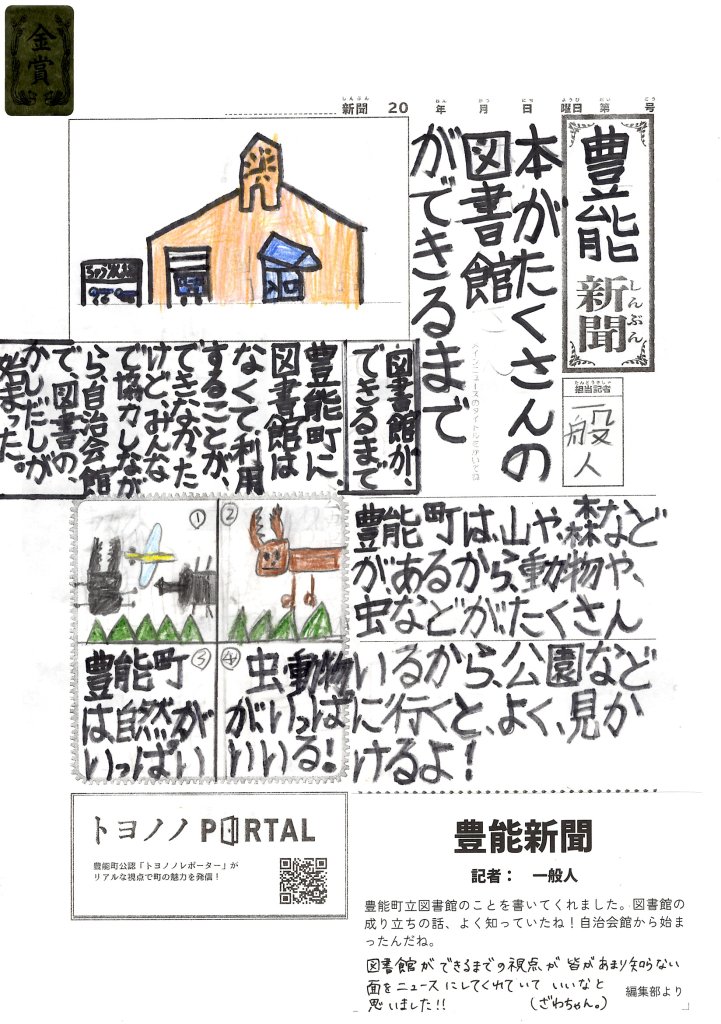 金賞
しんぶん ねん がつ にち ようび だい ごう
新聞 20 年 月 日 曜日 第 号
豊能
新聞
しんぶん
たんとうきしゃ
担当記者
一般人
本がたくさんの
図書館
ができるまで
図書館が、
できるまで
豊能町に、
図書館は
なくて、利用
することが、
できなかった
けど、みんな
で協力しなが
ら、自治会館
で、図書の、
かしだしが
始まった。
豊能町は、山や、森など
があるから、動物や、
虫などが、たくさん
いるから、公園など
に行くと、よく、見か
けるよ!
①
②
③
豊能町
は、自然が
いっぱい
④
虫動物
がいっぱ
いいる!
トヨノノ PORTAL
豊能町公認「トヨノノレポーター」が
リアルな視点で町の魅力を発信!
豊能新聞
記者: 一般人
豊能町立図書館のことを書いてくれました。図書館の
成り立ちの話、よく知っていたね!自治会館から始ま
ったんだね。
図書館ができるまでの視点が皆があまり知らない
面をニュースにしてくれていていいなと
思いました!!
(ざわちゃん。)
編集部より